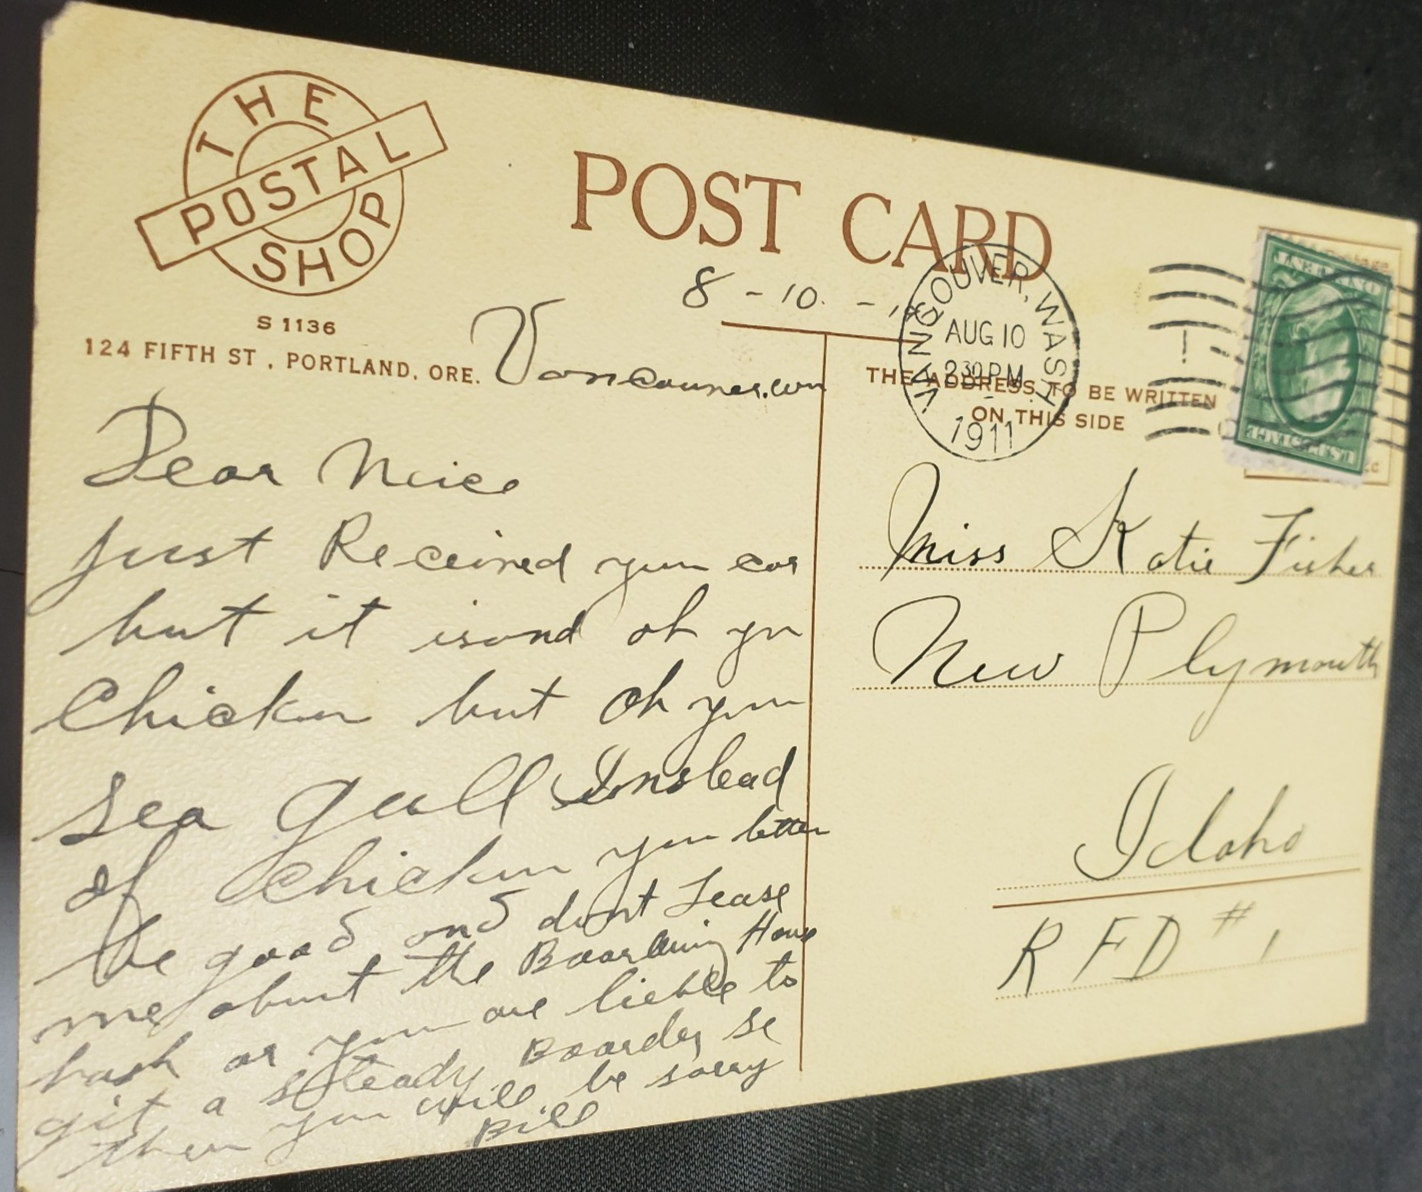 THE
POSTAL
SHOP
S 1136
124 FIFTH ST., PORTLAND, ORE.
POST CARD
8-10-
Vancouver. Wn
VANCOUVER, WASH
AUG 10
2 30 P.M.
1911
THE ADDRESS TO BE WRITTEN
ON THIS SIDE
U.S. POSTAGE
Dear Neice
just Received your car
but it isand oh yu
Chicken but Oh your
sea gull Instead
of chicken you better
be good and dont Tease
me about the Boarding House
hash or you are lieble to
git a steady Boarder se
then you will be sorry
Bill
Miss Katie Fisher
New Plymouth
Idaho
RFD # 1